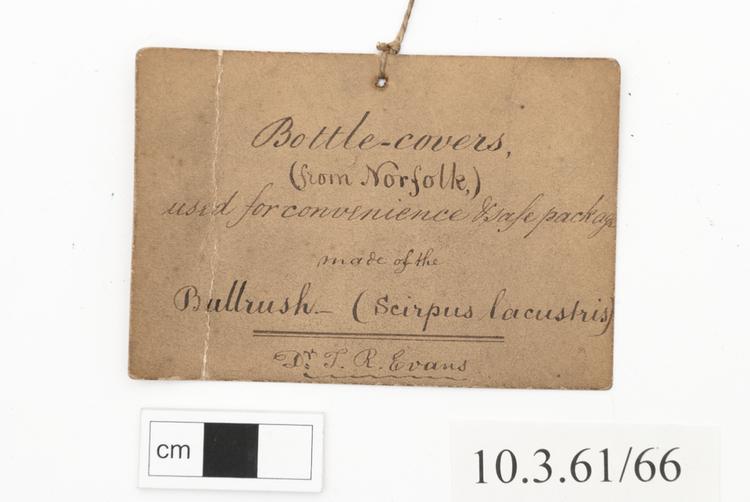 Bottle-covers,
(from Norfolk,)
used for convenience & safe package
made of the
Bullrush - (Scirpus lacustris)
Dr. T. R. Evans
cm
10.3.61/66